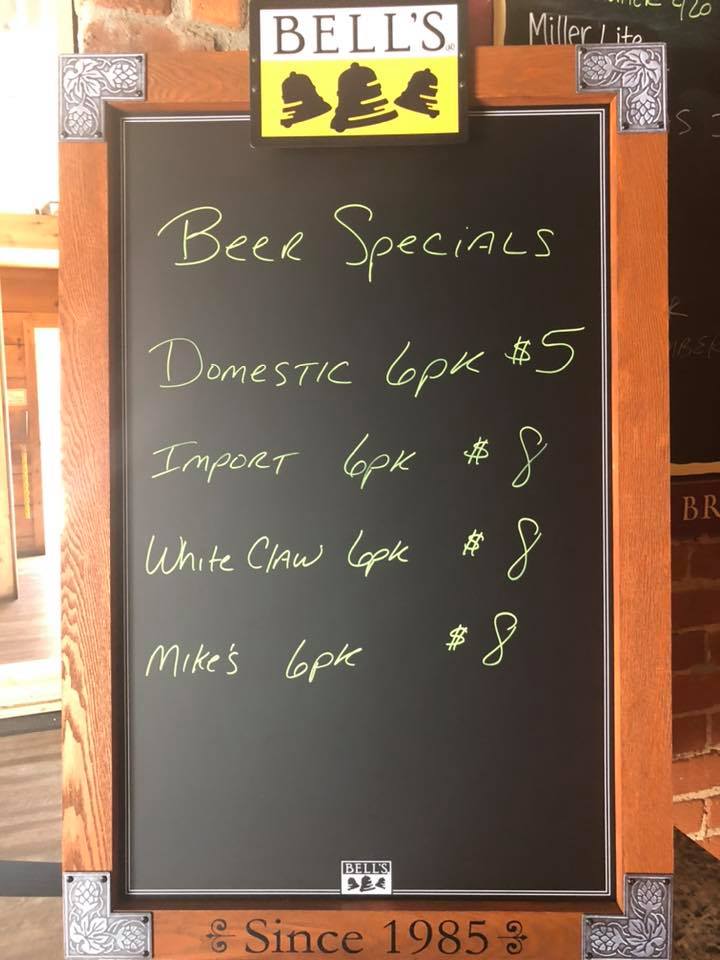 BELL'S
Miller Lite
Beer Specials
Domestic 6pk $5
Import 6pk $8
White Claw 6pk $8
Mike's 6pk $8
BR
BELL'S
Since 1985